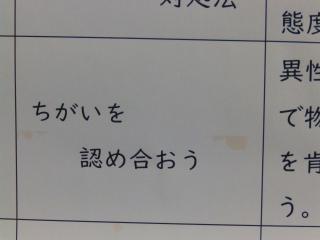 対処法
態度
ちがいを
認め合おう
異性
で物
を肯
う。